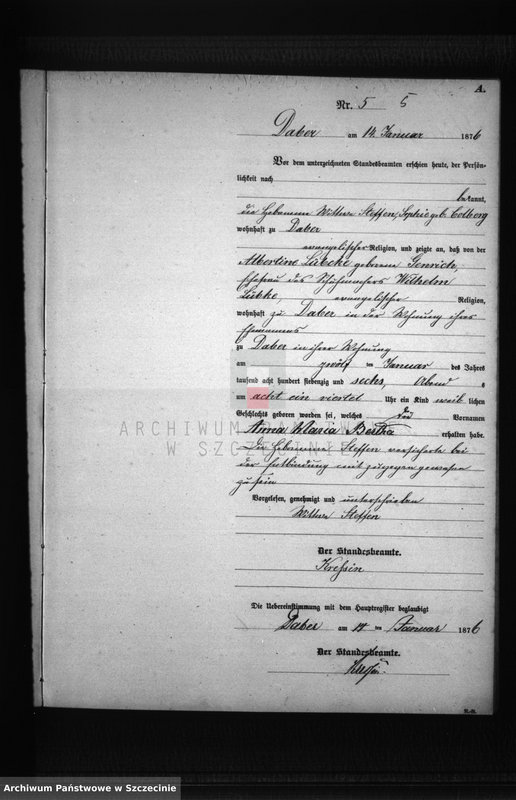 A.
Nr. 5 5
Daber am 14 Januar 1876
Vor dem unterzeichneten Standesbeamten erschien heute, der Persön-
lichkeit nach
bekannt,
die Hebamme Wittwe Steffen, Sophie geb. Colberg
wohnhaft zu Daber
evangelischer Religion, und zeigte an, daß von der
Albertine Lübcke geborene Genrich,
Ehefrau des Schuhmachers Wilhelm
Lübke, evangelischer Religion,
wohnhaft zu Daber in der Wohnung ihres
Ehemannes
zu Daber in ihrer Wohnung
am zwölf ten Januar des Jahres
tausend acht hundert siebenzig und sechs, Abend s
um acht ein viertel Uhr ein Kind weib lichen
Geschlechts geboren worden sei, welches die Vornamen
Anna Maria Bertha erhalten habe.
Die Hebamme Steffen versicherte bei
der Entbindung mit zugegen gewesen
zu sein
Vorgelesen, genehmigt und unterschrieben
Wittwe Steffen
Der Standesbeamte.
Kressin
Die Uebereinstimmung mit dem Hauptregister beglaubigt
Daber am 14 ten Januar 1876
Der Standesbeamte.
Kressin.
ARCHIWUM PAŃSTWOWE
W SZCZECINIE
Archiwum Państwowe w Szczecinie